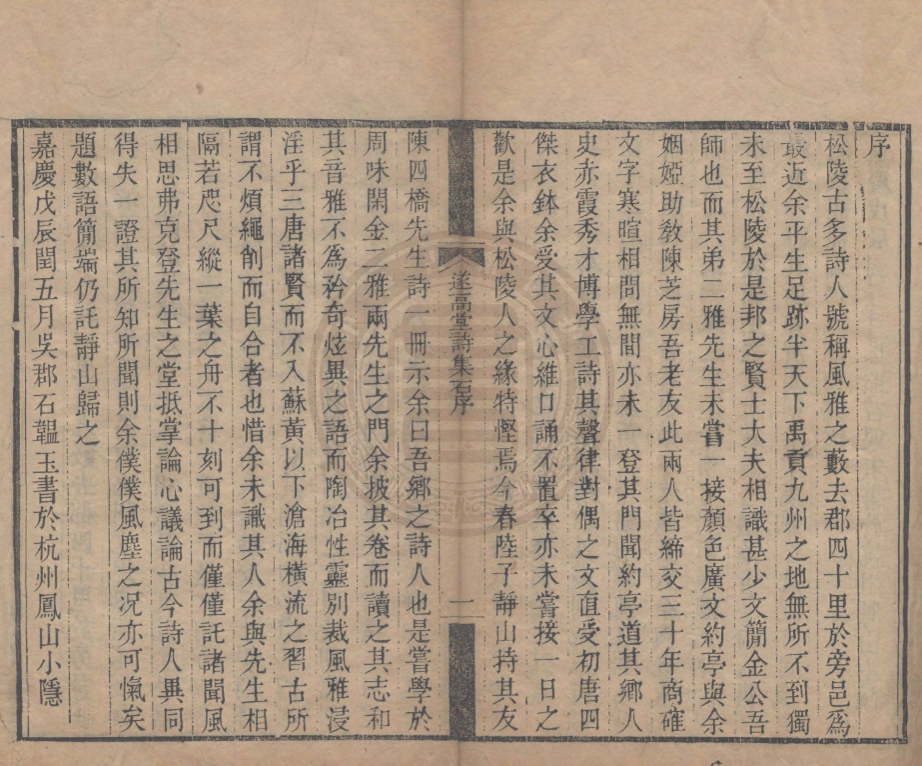 序
松陵古多詩人號稱風雅之藪去郡四十里於旁邑為
最近余平生足跡半天下禹貢九州之地無所不到獨
未至松陵於是邦之賢士大夫相識甚少文簡金公吾
師也而其弟二雅先生未嘗一接顏色廣文約亭與余
姻婭助敎陳芝房吾老友此兩人皆締交三十年商確
文字寒暄相問無間亦未一登其門聞約亭道其鄉人
史赤霞秀才博學工詩其聲律對偶之文直受初唐四
傑衣鉢余受其文心維口誦不置卒亦未嘗接一日之
歡是余與松陵人之緣特慳焉今春陸子靜山持其友
遂高堂詩集石序
一
陳四橋先生詩一冊示余曰吾鄉之詩人也是嘗學於
周味閑金二雅兩先生之門余披其卷而讀之其志和
其音雅不為矜奇炫異之語而陶冶性靈別裁風雅浸
淫乎三唐諸賢而不入蘇黃以下滄海橫流之習古所
謂不煩繩削而自合者也惜余未識其人余與先生相
隔若咫尺縱一葉之舟不十刻可到而僅僅託諸聞風
相思弗克登先生之堂抵掌論心議論古今詩人異同
得失一證其所知所聞則余僕僕風塵之况亦可愾矣
題數語簡端仍託靜山歸之
嘉慶戊辰閏五月吳郡石韞玉書於杭州鳳山小隱